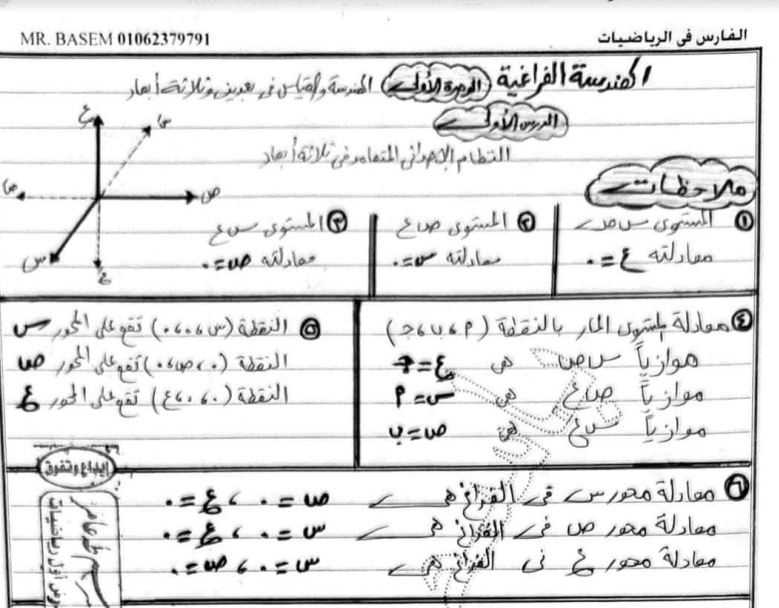 الفارس فى الرياضيات
MR. BASEM 01062379791
الهندسة الفراغية الوحدة الأولى الهندسة والقياس فى بعدين وثلاثة أبعاد
الدرس الأولى
النظام الإحداثى المتعامد فى ثلاثة أبعاد
ع
سَ
صَ
ص
س
عَ
ملاحظات
① المستوى س ص
معادلته ع = ٠
② المستوى ص ع
معادلته س = ٠
③ المستوى س ع
معادلته ص = ٠
④ معادلة المستوى المار بالنقطة (٢ ، ب ، جـ)
موازياً س ص هى ع = جـ
موازياً ص ع هى س = ٢
موازياً س ع هى ص = ب
⑤ النقطة (س ، ٠ ، ٠) تقع على المحور س
النقطة (٠ ، ص ، ٠) تقع على المحور ص
النقطة (٠ ، ٠ ، ع) تقع على المحور ع
⑥ معادلة محور س فى الفراغ هى ص = ٠ ، ع = ٠
معادلة محور ص فى الفراغ هى س = ٠ ، ع = ٠
معادلة محور ع فى الفراغ هى س = ٠ ، ص = ٠
إبداع وتفوق